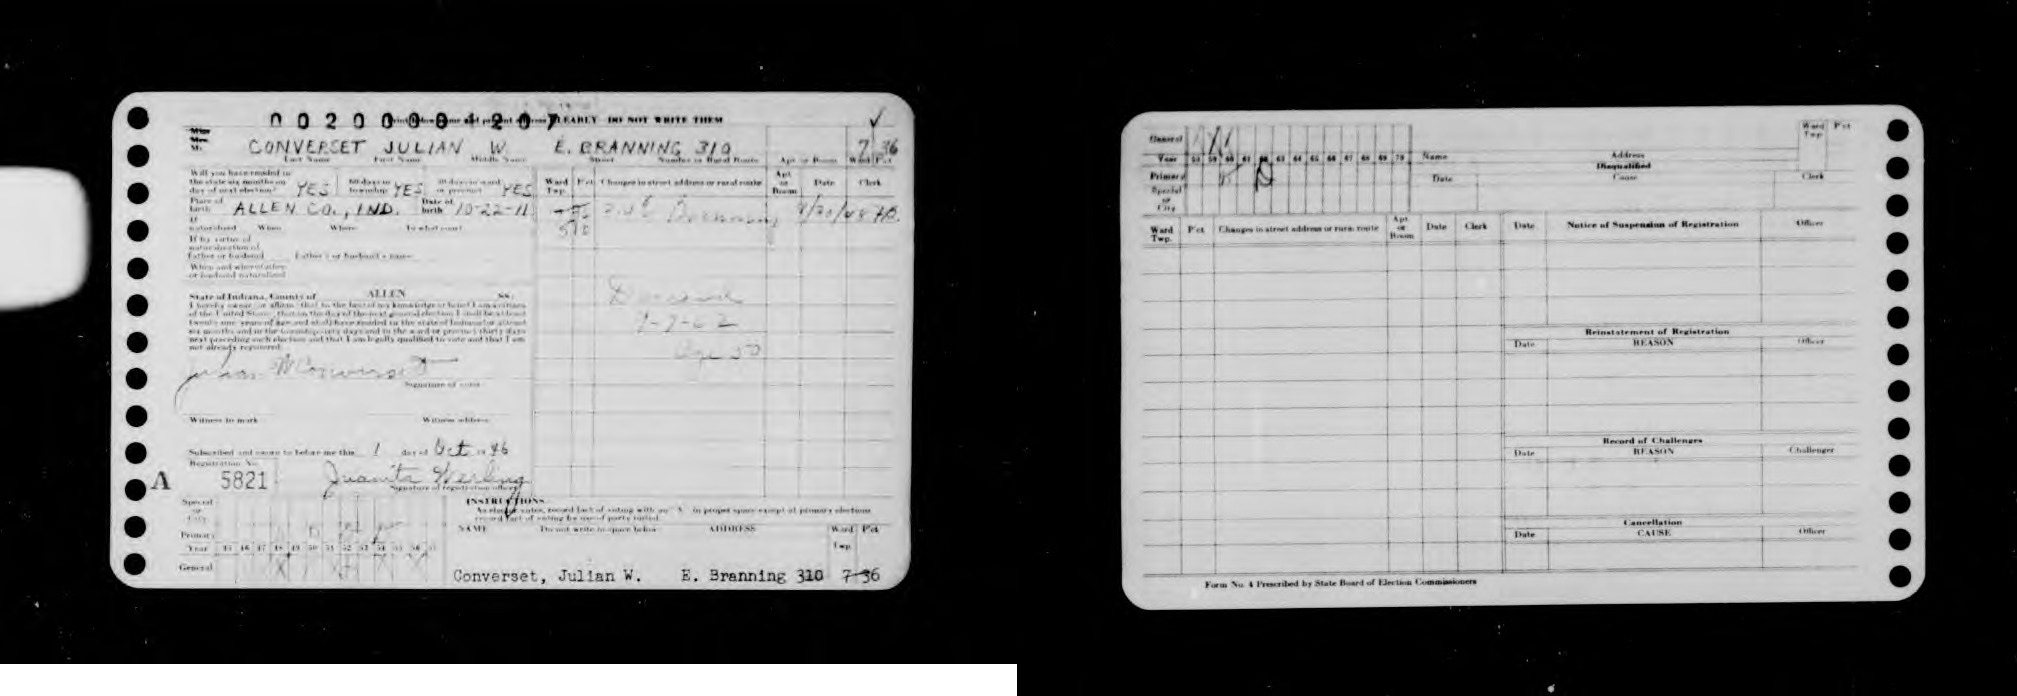 0020000 1207
CLEARLY DO NOT WRITE THEM
Miss
Mrs.
Mr.
CONVERSET JULIAN W. E. BRANNING 310 7 36
Last Name First Name Middle Name Street Number or Rural Route Apt or Room Ward Pct
Will you have resided in
the state six months on
day of next election? YES 60 days in township YES 30 days in ward or precinct YES
Place of birth ALLEN CO., IND. Date of birth 10-22-11
If naturalized When Where In what court
If by virtue of
naturalization of
father or husband Father's or husband's name
When and where father
or husband naturalized
Ward Twp. Pct Changes in street address or rural route Apt or Room Date Clerk
Branning 9/20/48
State of Indiana, County of ALLEN SS:
I hereby swear or affirm that to the best of my knowledge and belief I am a citizen
of the United States, that on the day of the next general election I shall be at least
twenty one years of age and shall have resided in the state of Indiana for at least
six months and in the township sixty days and in the ward or precinct thirty days
next preceding such election and that I am legally qualified to vote and that I am
not already registered.
Deceased
9-7-62
Age 50
Julian W Converset
Signature of voter
Witness to mark Witness address
Subscribed and sworn to before me this 1 day of Oct. 19 46
Registration No.
A 5821 Juanita Werling
Signature of registration officer
INSTRUCTIONS
As elector votes, record fact of voting with an "X" in proper space except at primary elections
record fact of voting by use of party initial.
NAME Do not write in space below ADDRESS Ward Twp. Pct
Special or City
Primary
Year 45 46 47 48 49 50 51 52 53 54 55 56 57
General
Converset, Julian W. E. Branning 310 7-36
General
Year 58 59 60 61 62 63 64 65 66 67 68 69 70 Name Address Ward Twp. Pct
Primary
Special
or
City
Disqualified
Date Cause Clerk
Ward Twp. Pct Changes in street address or rural route Apt or Room Date Clerk
Date Notice of Suspension of Registration Officer
Reinstatement of Registration
Date REASON Officer
Record of Challenges
Date REASON Challenger
Cancellation
Date CAUSE Officer
Form No. 4 Prescribed by State Board of Election Commissioners